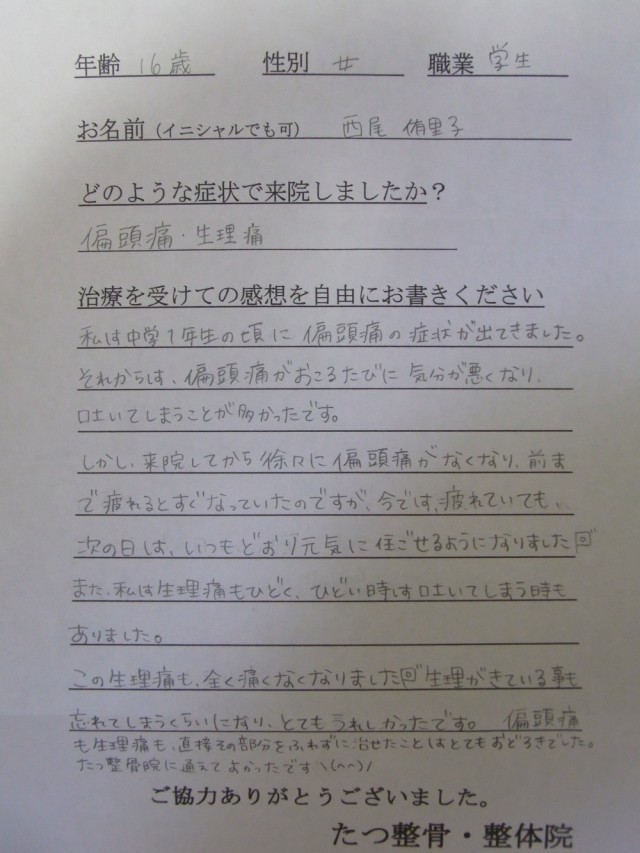 年齢 16歳 性別 女 職業 学生
お名前(イニシャルでも可) 西尾 侑里子
どのような症状で来院しましたか?
偏頭痛・生理痛
治療を受けての感想を自由にお書きください
私は中学1年生の頃に偏頭痛の症状が出てきました。
それからは、偏頭痛がおこるたびに気分が悪くなり、
吐いてしまうことが多かったです。
しかし、来院してから徐々に偏頭痛がなくなり、前ま
で疲れるとすぐなっていたのですが、今では、疲れていても、
次の日は、いつもどおり元気に住ごせるようになりました
また、私は生理痛もひどく、ひどい時は吐いてしまう時も
ありました。
この生理痛も、全く痛くなくなりました 生理がきている事も
忘れてしまうくらいになり、とてもうれしかったです。 偏頭痛
も生理痛も、直接その部分をふれずに治せたことはとてもおどろきでした。
たつ整骨院に通えてよかったです\(^^)/
ご協力ありがとうございました。
たつ整骨・整体院